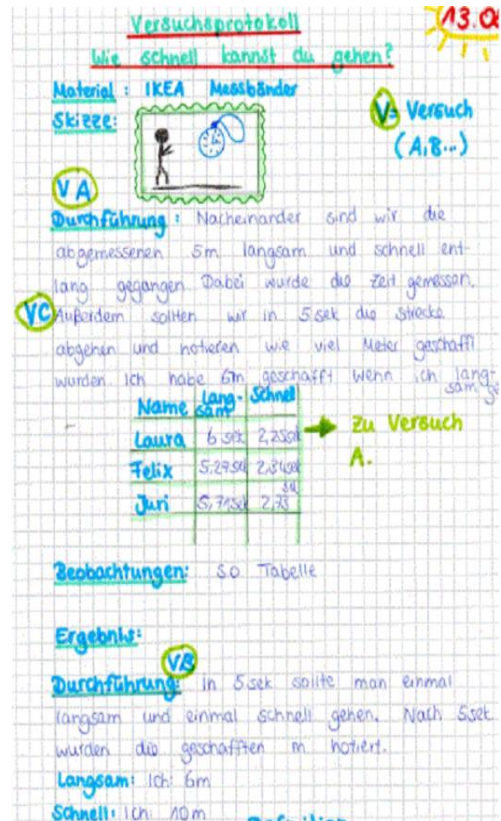 Versuchsprotokoll
13.0
Wie schnell kannst du gehen?
Material: IKEA Messbänder
Skizze:
V= Versuch
(A,B...)
VA
Durchführung: Nacheinander sind wir die
abgemessenen 5m langsam und schnell ent-
lang gegangen Dabei wurde die Zeit gemessen.
VC Außerdem sollten wir in 5 sek die Strecke
abgehen und notieren wie viel Meter geschafft
wurden Ich habe 6m geschafft wenn ich lang-
sam ge
Name Lang-sam Schnell
Laura 6 sek 2,25sek
Felix 5,29sek 2,34sek
Juri 5,71sek 2,73 sek
→ zu Versuch
A.
Beobachtungen: so Tabelle
Ergebnis:
VB
Durchführung: in 5sek sollte man einmal
langsam und einmal schnell gehen. Nach 5sek
wurden die geschafften m notiert.
Langsam: Ich: 6m
Schnell: Ich: 10m
Definition